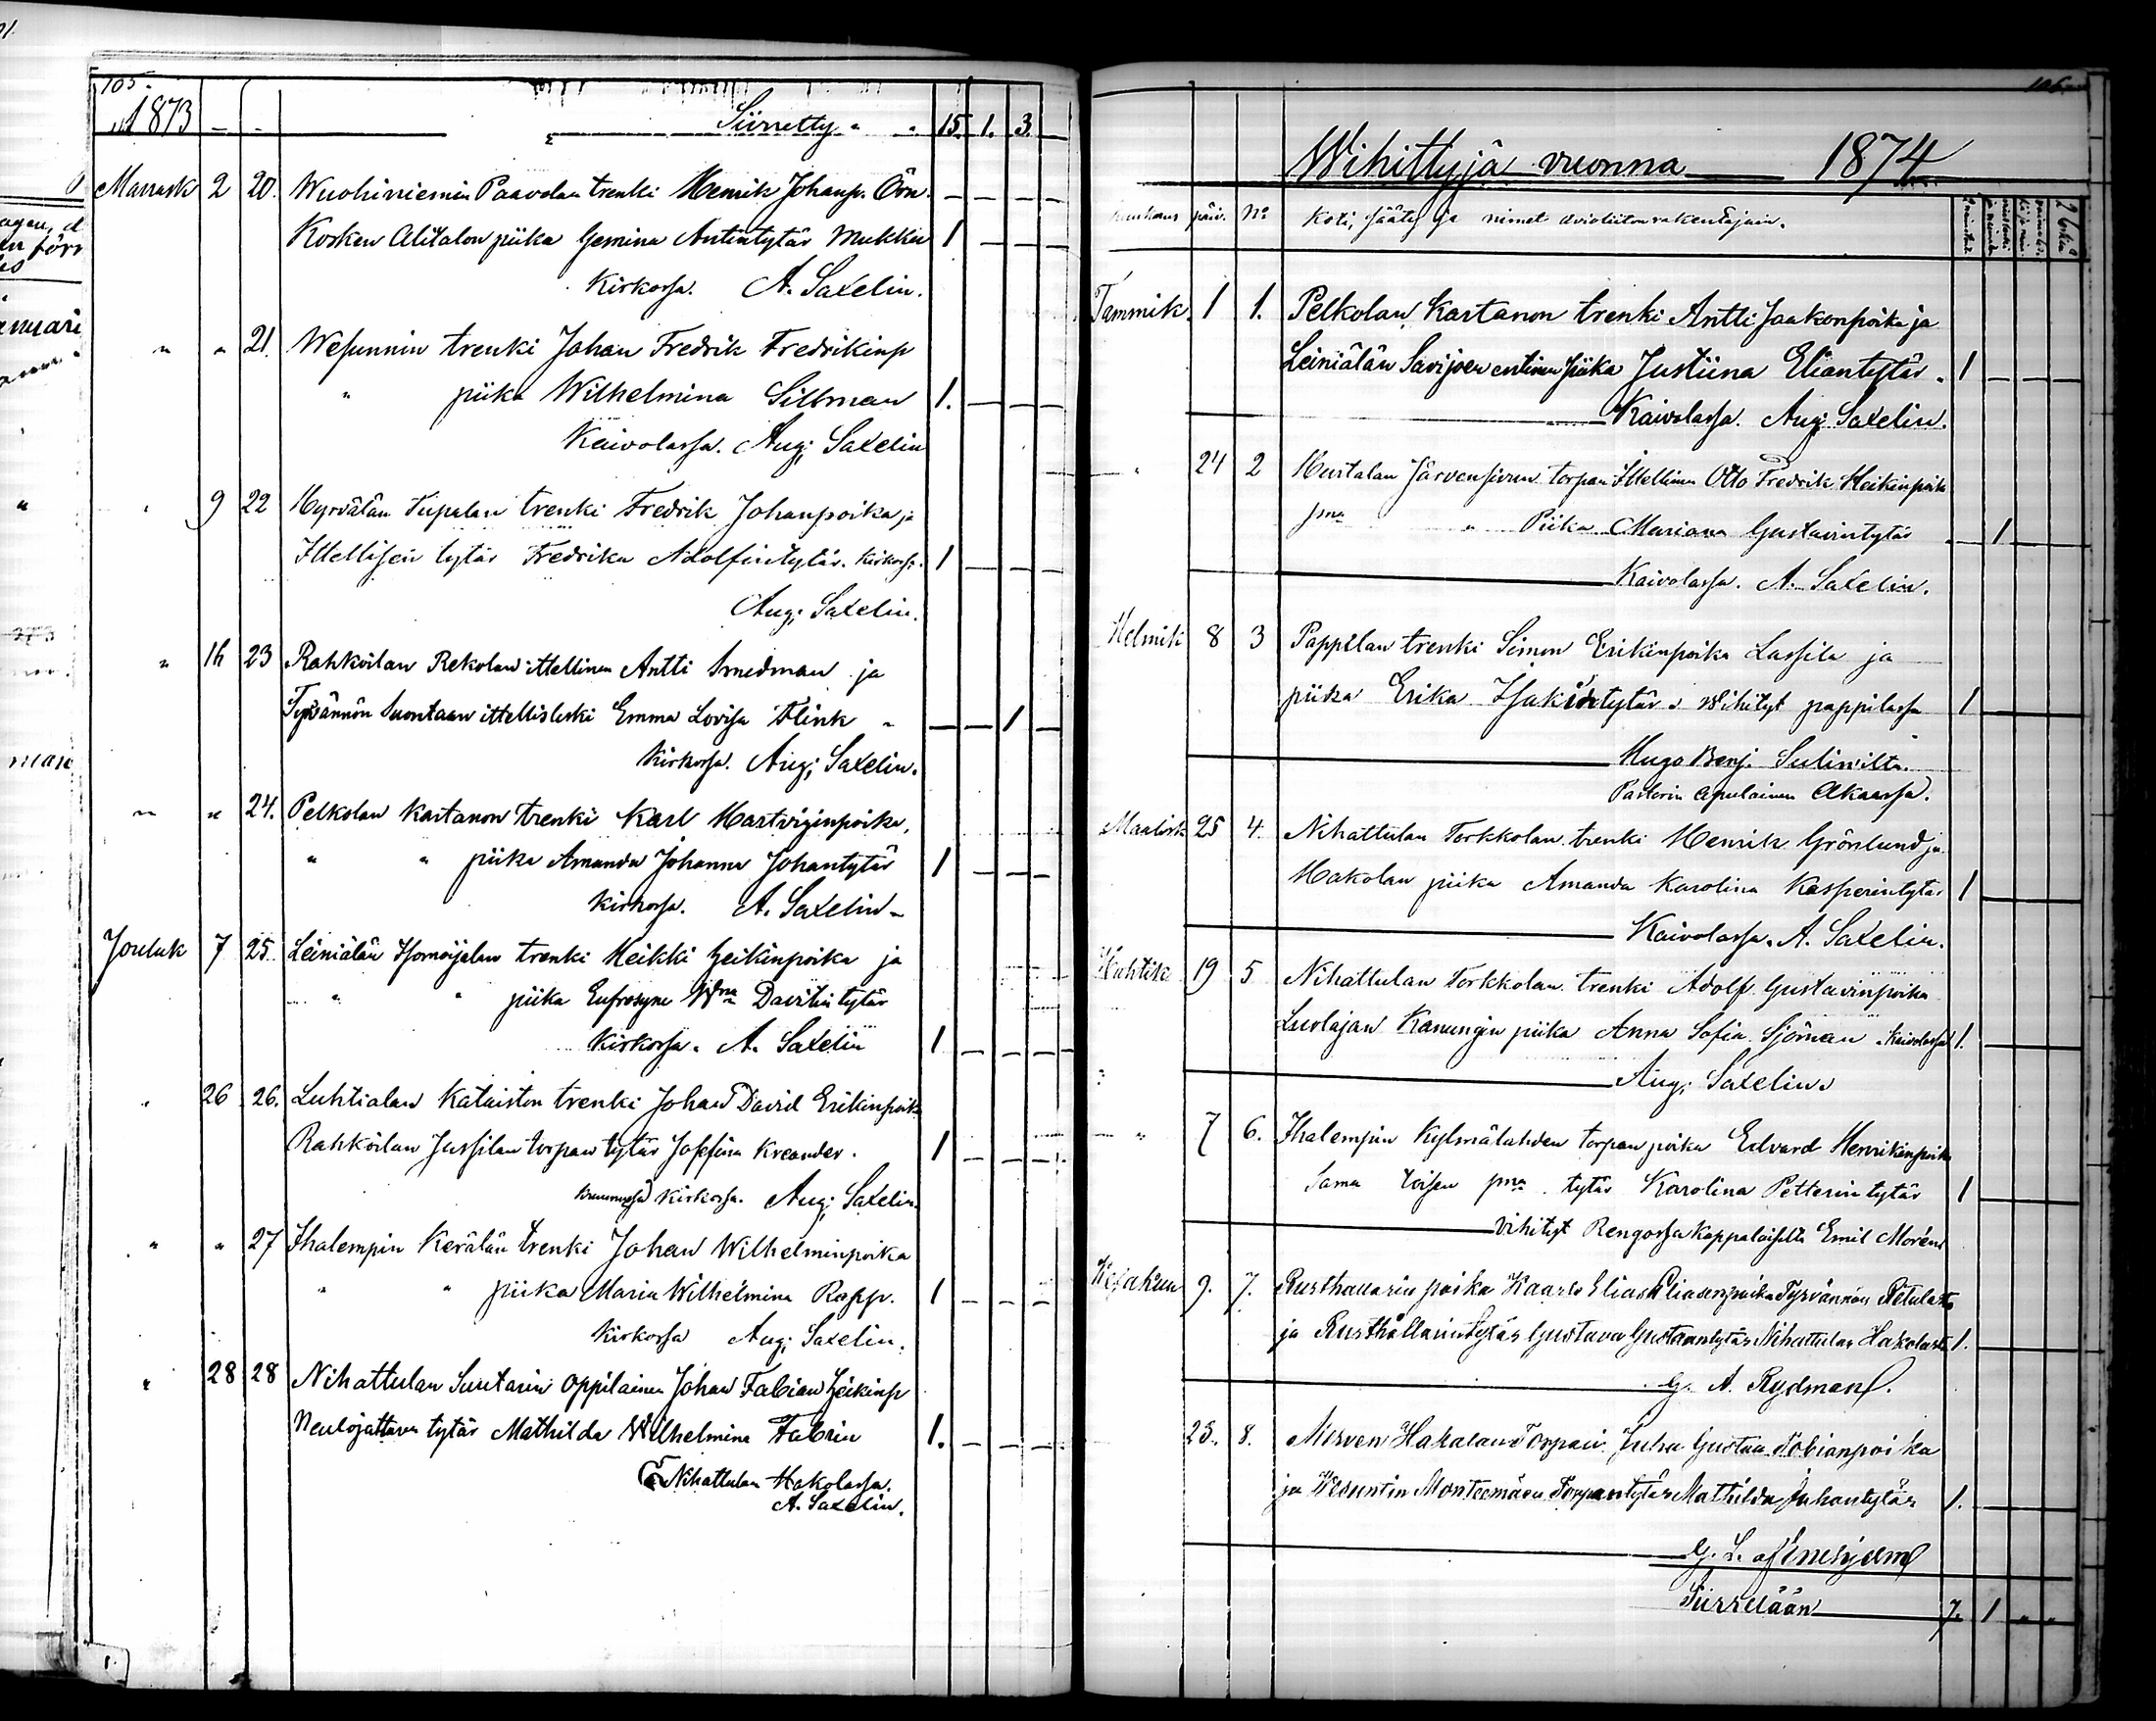 105.
1873 Siirretty 15. 1. 3.
Marrask 2 20. Wuohiniemin Paavolan trenki Henrik Johanp. Örn. – – – –
Kosken Alitalon piika Gemina Antintytär Mukku 1 – – –
Kirkossa. A. Saxelin.
" " 21. Wesunnin trenki Johan Fredrik Fredrikinp
" piika Wilhelmina Sillman 1. – – –
Kaivolassa. Aug; Saxelin
" 9 22 Hyrvälän Tupalan trenki Fredrik Johanpoika ja
Ittellisen tytär Fredrika Adolfintytär. Kirkossa. 1 – – –
Aug; Saxelin.
" 16 23 Rahkoilan Rekolan ittellinen Antti Smedman ja
Tyrvännön Suontaan ittellisleski Emma Lovisa Flink " – – 1 –
Kirkossa. Aug; Saxelin.
" " 24. Pelkolan Kartanon trenki Karl Hartviginpoika,
" " piika Amanda Johanna Johantytär 1 – – –
Kirkossa. A. Saxelin –
Jouluk 7 25. Leiniälän Isomöijalan trenki Heikki Heikinpoika ja
" " piika Eufrosyne Wma Davitin tytär
Kirkossa. A. Saxelin 1 – – –
" 26 26. Luhtialan Kataiston trenki Johan David Erikinpoika
Rahkoilan Jussilan torpan tytär Josefina Kreander. 1 – – –
Kirkossa. Aug; Saxelin.
" " 27 Ihalempin Kerälän trenki Johan Wilhelminpoika
" " piika Maria Wilhelmina Rapp. 1 – – –
Kirkossa Aug; Saxelin.
" 28 28 Nihattulan Suutarin oppilainen Johan Fabian Heikinp
Neulojattaren tytär Mathilda Wilhelmina Fabrin 1. – – –
Nihattulan Hakolassa.
A. Saxelin.
106.
Wihittyjä vuonna 1874
Kuukaus päiv. No Koti, sääty ja nimet avioliiton rakentajain.
Tammik. 1 1. Pelkolan Kartanon trenki Antti Jaakonpoika ja
Leiniälän Savijoen entinen piika Justiina Eliantytär. 1 – – –
Kaivolassa. Aug; Saxelin.
" 24 2 Hurtalan Järvensivun torpan Ittellinen Otto Fredrik Heikinpoik
sma " Piika Mariana Gustavintytär – 1 – –
Kaivolassa. A. Saxelin.
Helmik 8 3 Pappilan trenki Simon Erikinpoika Lassila ja
piika Erika Isakintytär. Wihityt pappilassa 1 – – –
Hugo Benj. Sulinilta.
Pastorin apulainen Akaassa.
Maalisk 25 4. Nihattulan Torkkolan trenki Henrik Grönlund ja
Hakolan piika Amanda Karolina Kasperintytär 1 – – –
Kaivolassa. A. Saxelin.
Huhtik 19 5 Nihattulan Torkkolan trenki Adolf Gustavinpoika
Luolajan Kanungin piika Anna Sofia Sjöman. Kaivolassa 1. – – –
Aug; Saxelin.
" 7 6. Ihalempin Kylmälahden torpan poika Edvard Henrikinpoika
Sama sma tytär Karolina Petterin tytär 1 – – –
Vihityt Rengossa kappalaiselta Emil Morén
Kesäkuu 9. 7. Rusthallarin poika Kaarlo Elias Eliaanpoika Tyrvännön Retulasta
ja Rusthallarintytär Gustava Gustaantytär Nihattulan Hakolasta 1. – – –
G. A. Rydman.
23. 8. Mirven Hakalan Torpari Juha Gustaa Tobianpoika
ja Wesuntin Monteemäen Torpantytär Mathilda Juhantytär 1. – – –
Siirretään 7. 1 " "